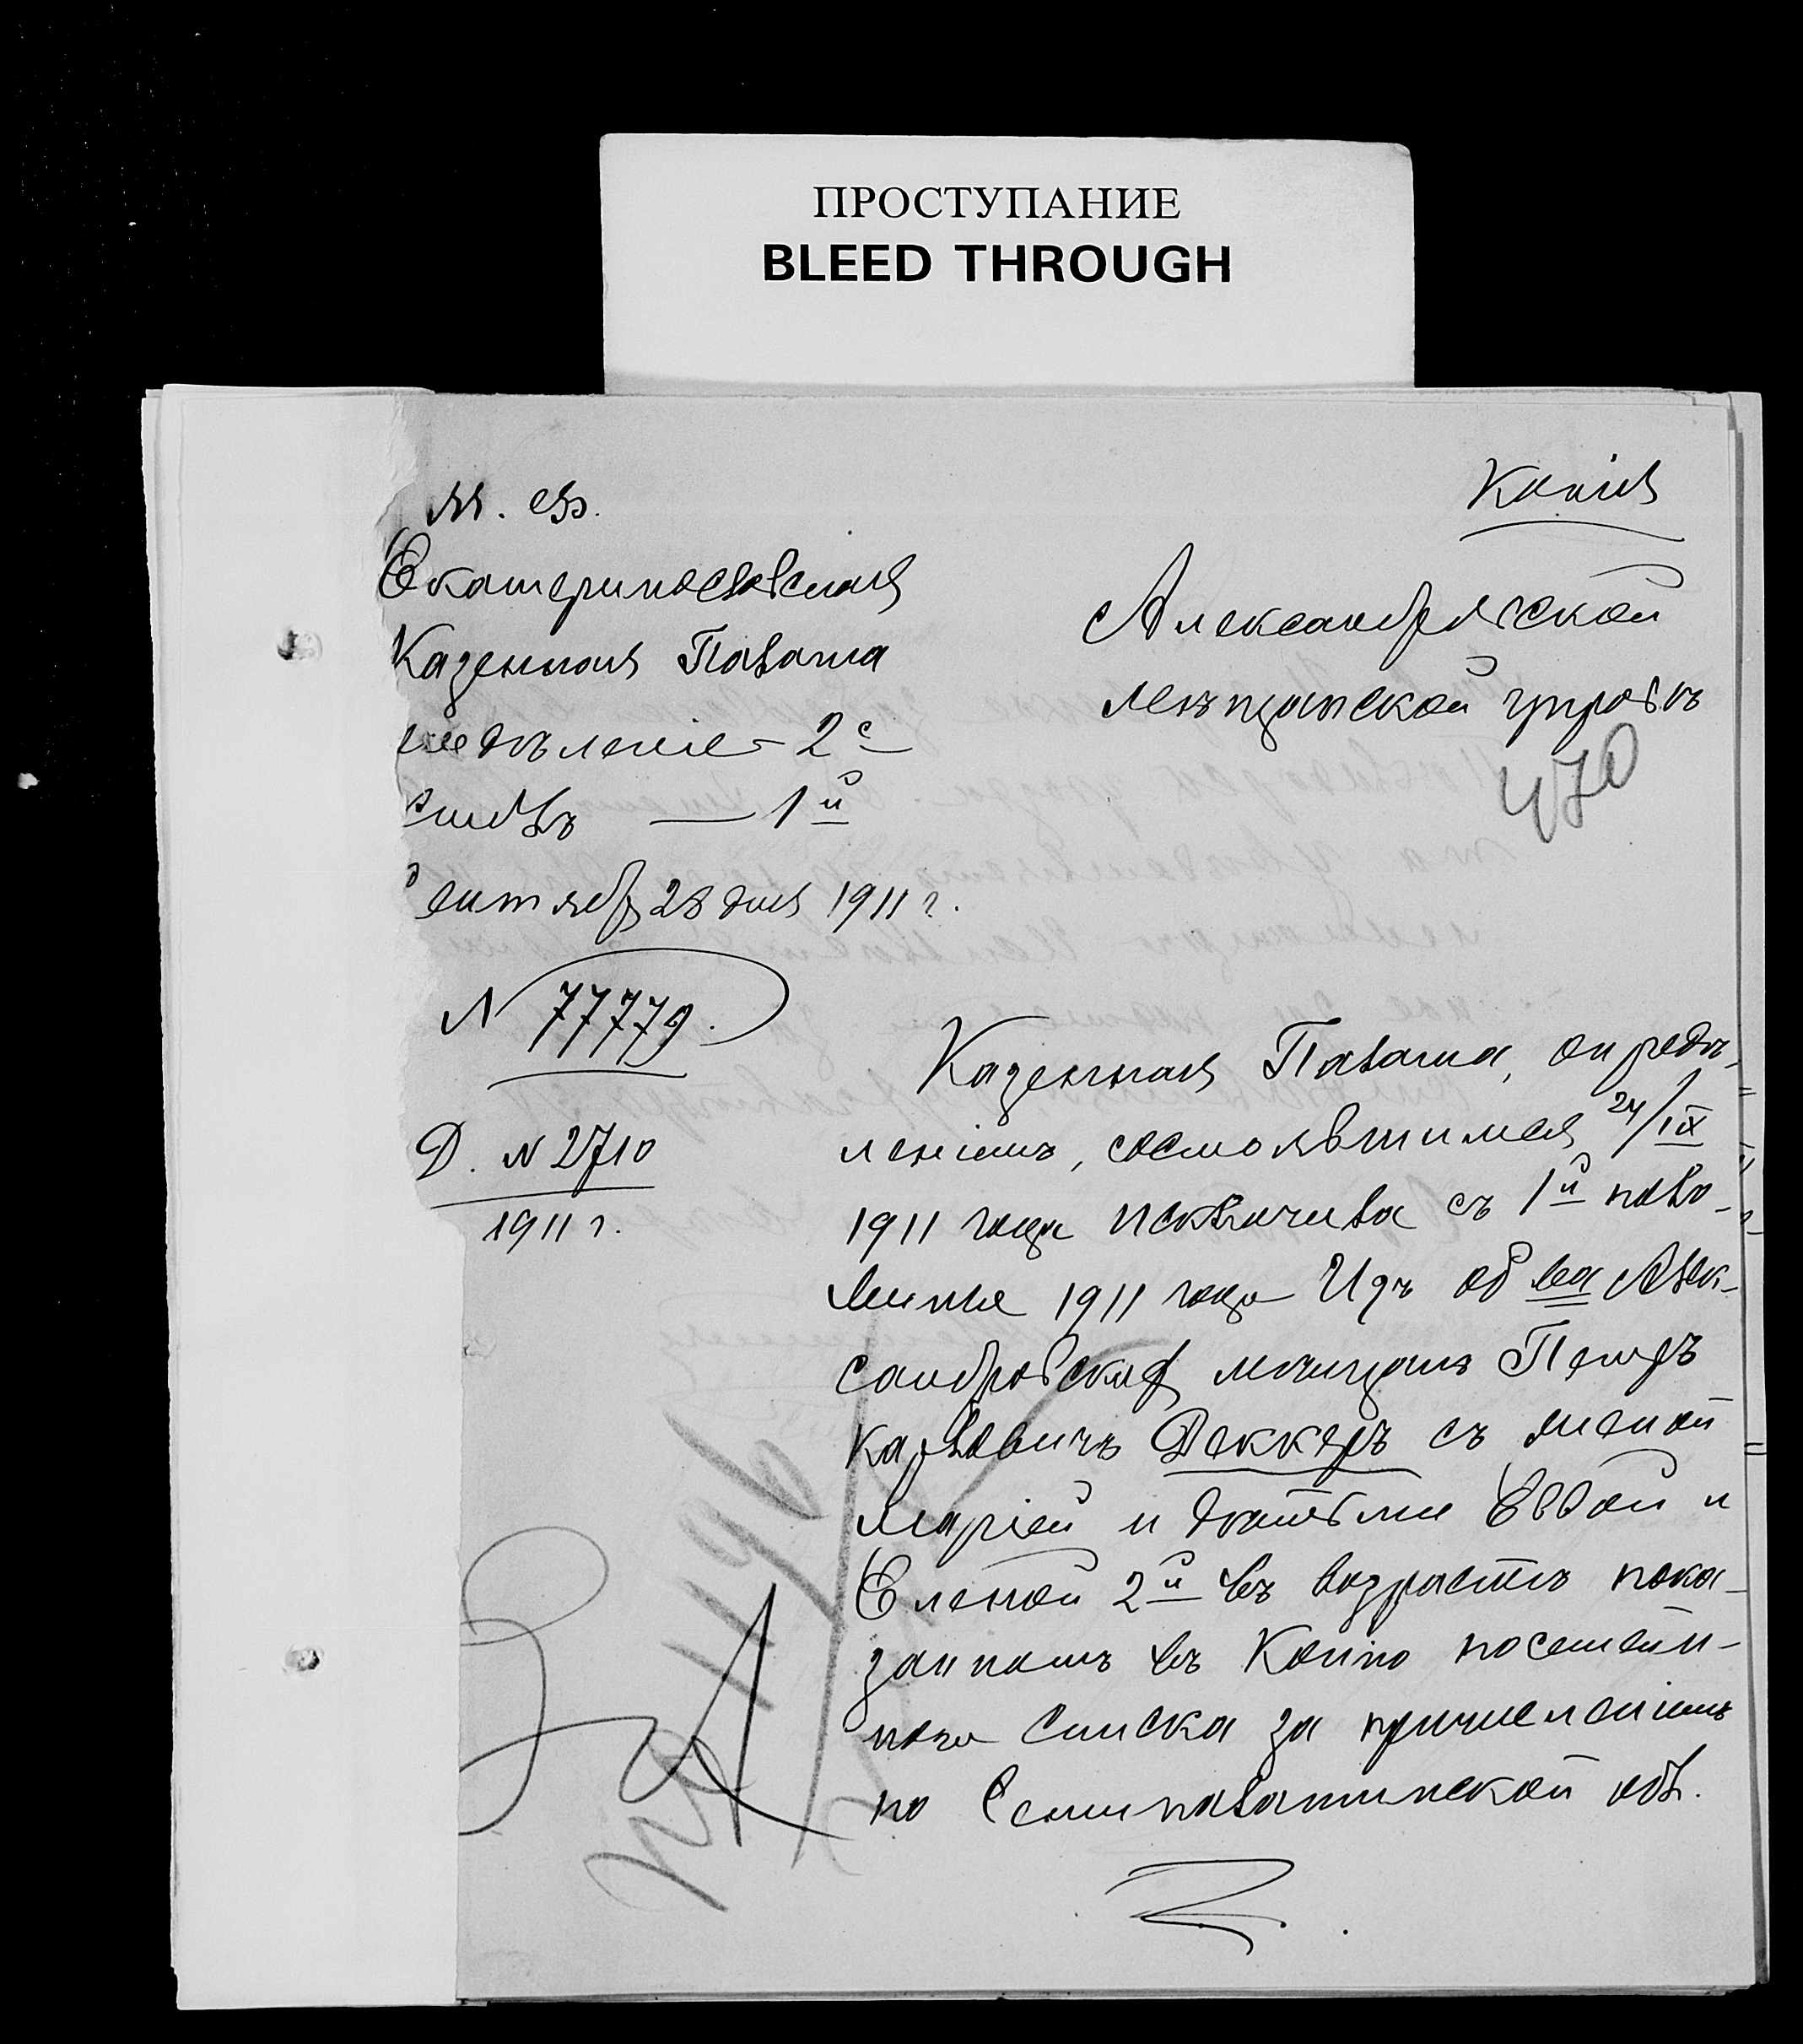 ПРОСТУПАНИЕ
BLEED THROUGH
Копія
М. Ф.
Екатеринославская
Казенная Палата
дѣленіе – 2е
Столъ — 1й
Сентября 28 дня 1911 г.
N 77779.
Д. N 2710
1911 г.
Александровской
мѣщанской управѣ
470
Казенная Палата, опредѣ-
леніемъ, состоявшимся 24/IX
1911 года исключила съ 1й поло-
вины 1911 года Изъ об ва Алек-
сандровских мѣщанъ Петръ
Карловичъ Деккеръ съ женой
Маріей и дѣтьми Евой и
Еленой 2й въ возрастѣ пока-
занномъ въ Копію посемей-
наго списка за причисленіемъ
по Семипалатинской обл.
№ 1196